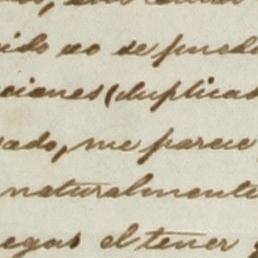 ido no se puede
ciones (duplicad
sado, me parece
naturalmente
egar el tener